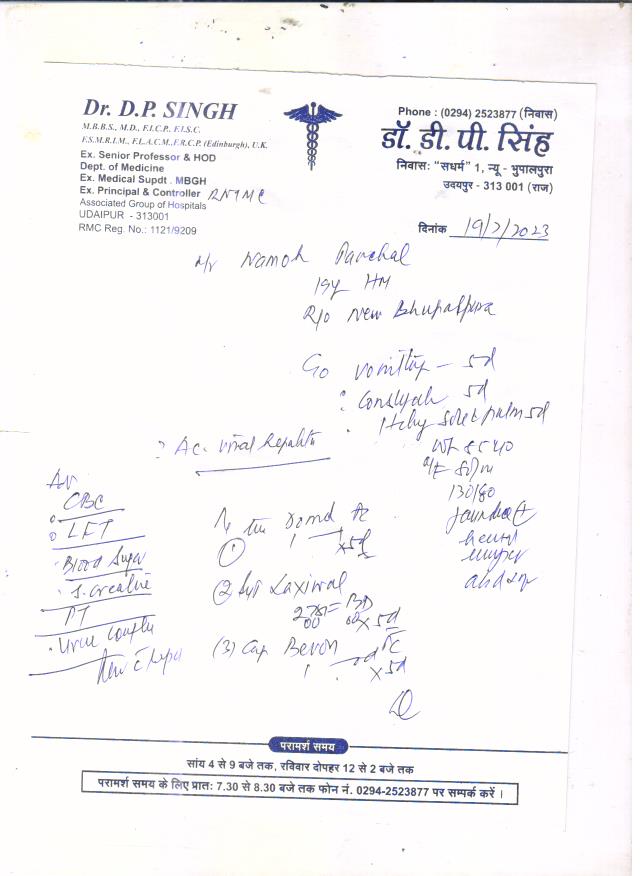 Dr. D.P. SINGH
M.B.B.S., M.D., F.I.C.P., F.I.S.C.
F.S.M.R.I.M., F.L.A.C.M., F.R.C.P. (Edinburgh), U.K.
Ex. Senior Professor & HOD
Dept. of Medicine
Ex. Medical Supdt . MBGH
Ex. Principal & Controller RNTMC
Associated Group of Hospitals
UDAIPUR - 313001
RMC Reg. No.: 1121/9209
Phone : (0294) 2523877 (निवास)
डॉ. डी. पी. सिंह
निवास: "सधर्म" 1, न्यू - भुपालपुरा
उदयपुर - 313 001 (राज)
दिनांक 19/2/2023
Mr Namoh Panchal
19y HM
R/o New Bhupalpura
C/o vomiting - 5d
5d
Itchy sole & palm 5d
? Ac. viral hepatitis
130/80
Adv
CBC
LFT
Blood Sugar
S. creatine
PT
Urine complete
(1)
x 5d
(2) Laxiwal
BD
x 5d
(3) Cap Bevon
x 5d
परामर्श समय
सांय 4 से 9 बजे तक, रविवार दोपहर 12 से 2 बजे तक
परामर्श समय के लिए प्रातः 7.30 से 8.30 बजे तक फोन नं. 0294-2523877 पर सम्पर्क करें ।